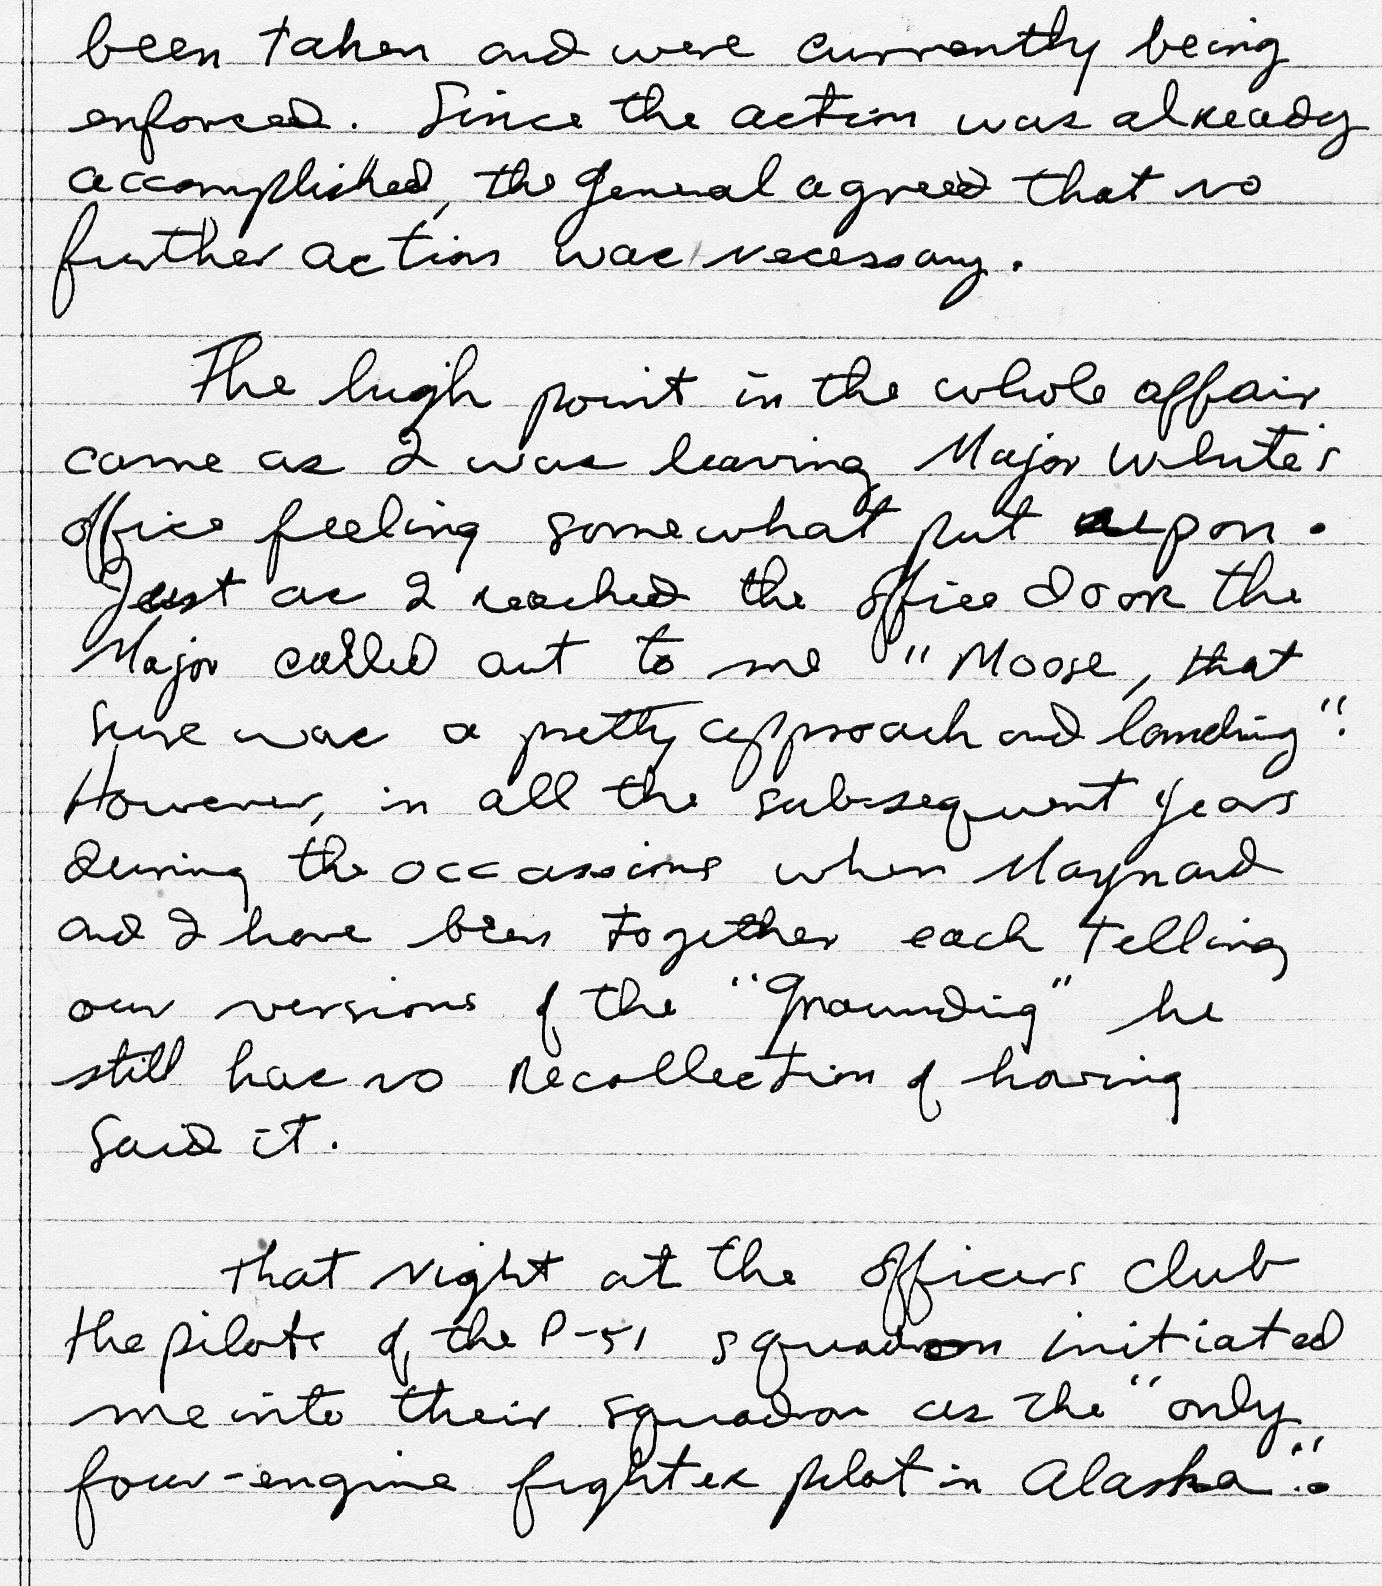 been taken and were currently being
enforced. Since the action was already
accomplished, the General agreed that no
further action was necessary.
The high point in the whole affair
came as I was leaving Major White's
office feeling somewhat put upon.
Just as I reached the office door the
Major called out to me "Moose, that
sure was a pretty approach and landing".
However, in all the subsequent years
during the occassions when Maynard
and I have been together each telling
our versions of the "Grounding" he
still has no recollection of having
said it.
That night at the officers club
the pilots of the P-51 squadron initiated
me into their squadron as the "only
four-engine fighter pilot in Alaska".